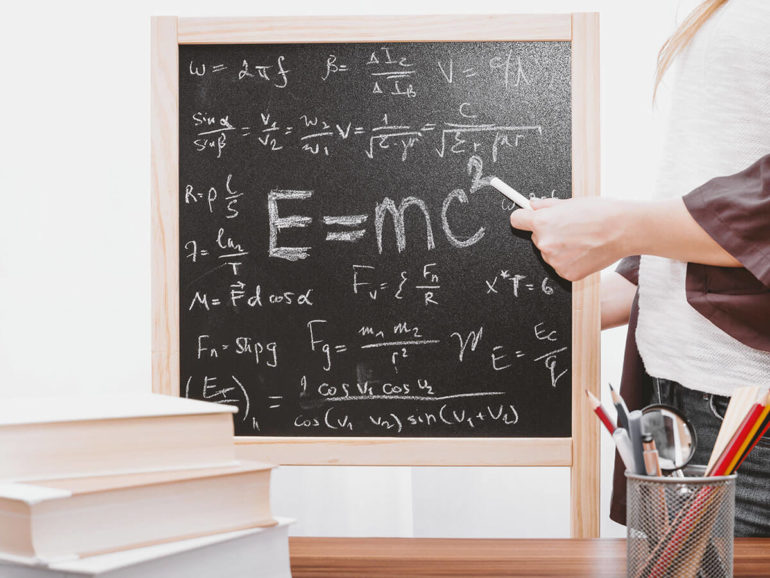 ω = 2πf β = ΔI_c / ΔI_B V = c/λ
sinα / sinβ = v₁ / v₂ = w₂ / w₁ V = 1 / √ε·μ = c / √εr μr
R = ρ l / S
E = mc²
M = F⃗ d cosα F_v = { F_n / R x*T = 6
F_n = Shρg F_g = m₁ m₂ / r² E = E_c / q
cos v₁ cos v₂
cos(v₁ v₂) sin(v₁+v₂)